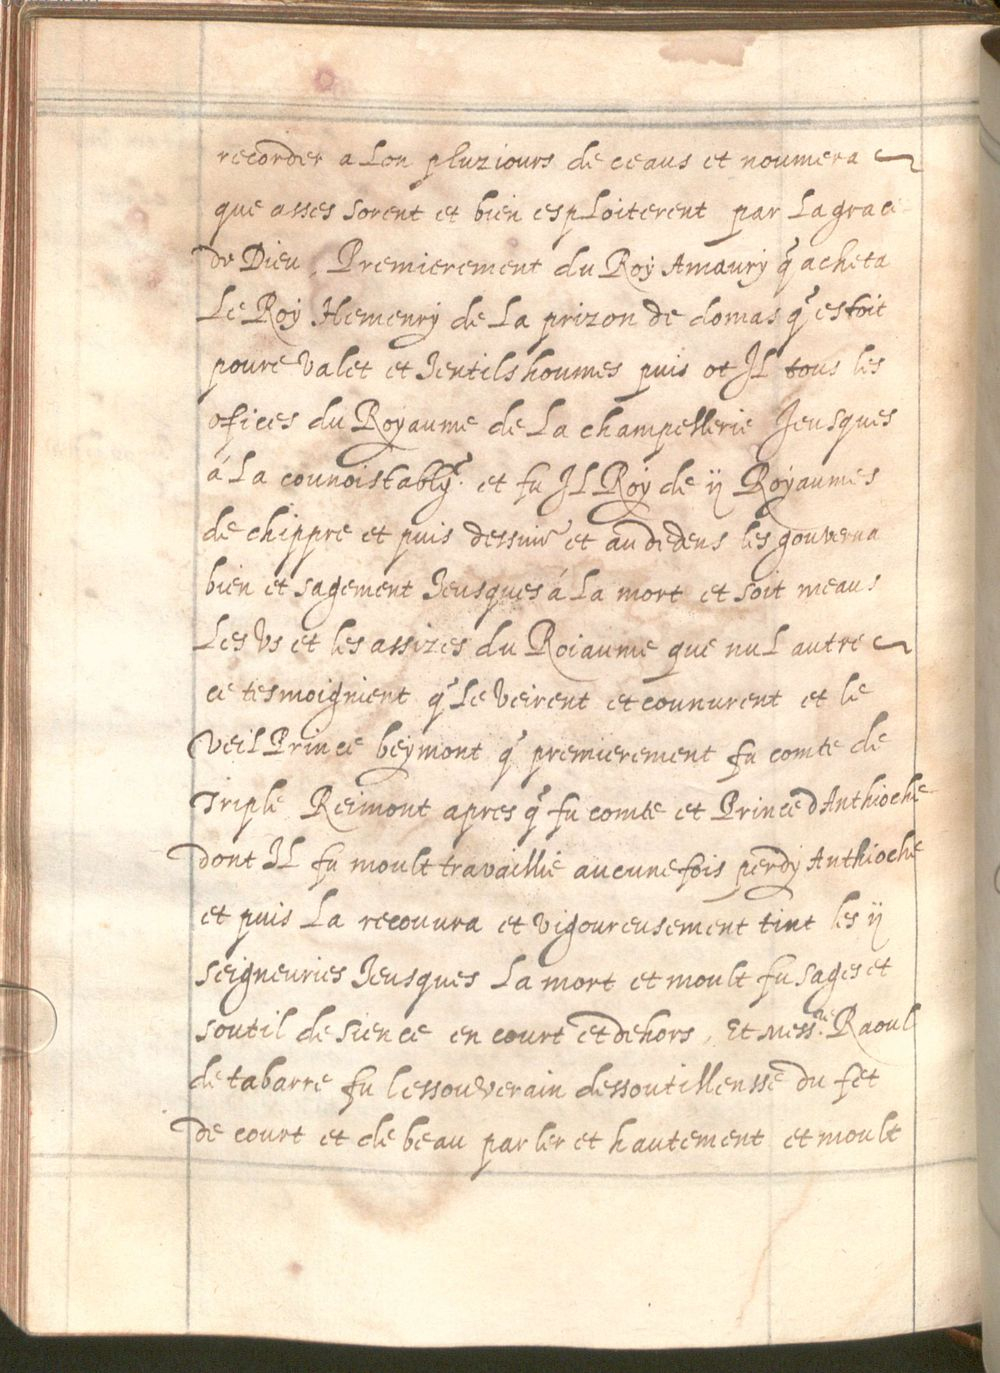 recorder a Lon pluziours de ceaus et noumera
que asses sorent et bien esploiterent par La grace
de Dieu, Premierement du Roy Amaury q̃ acheta
Le Roy Hemenry de La prizon de domas q̃ estoit
poure Valet et Jentils houmes puis ot JL tous les
ofices du Royaume de La champellerie Jeusques
á La counoistably^e. et fu JL Roy de ÿ Royaumes
de chippre et puis dessuir et au dedens les gouverna
bien et sagement Jeusques á La mort et soit meaus
Les Vs et les assizes du Roiaume que nuL autre
ce tesmoignient q̃ Le Veirent et counurent et le
VeiL Prince beymont q̃ premierement fu comte de
Triple Reimont apres q̃ fu comte et Prince d Anthioche
dont JL fu moult travaillie aucunefois perdy Anthioche
et puis La recouvra et vigoureusement tint les ÿ
seigneuries Jeusques La mort et moult fu sages et
soutil de sience en court et dehors, Et mess.^re Raoul
de tabarre fu lessouverain dessoutillensse du fet
de court et de beau parler et hautement et moult